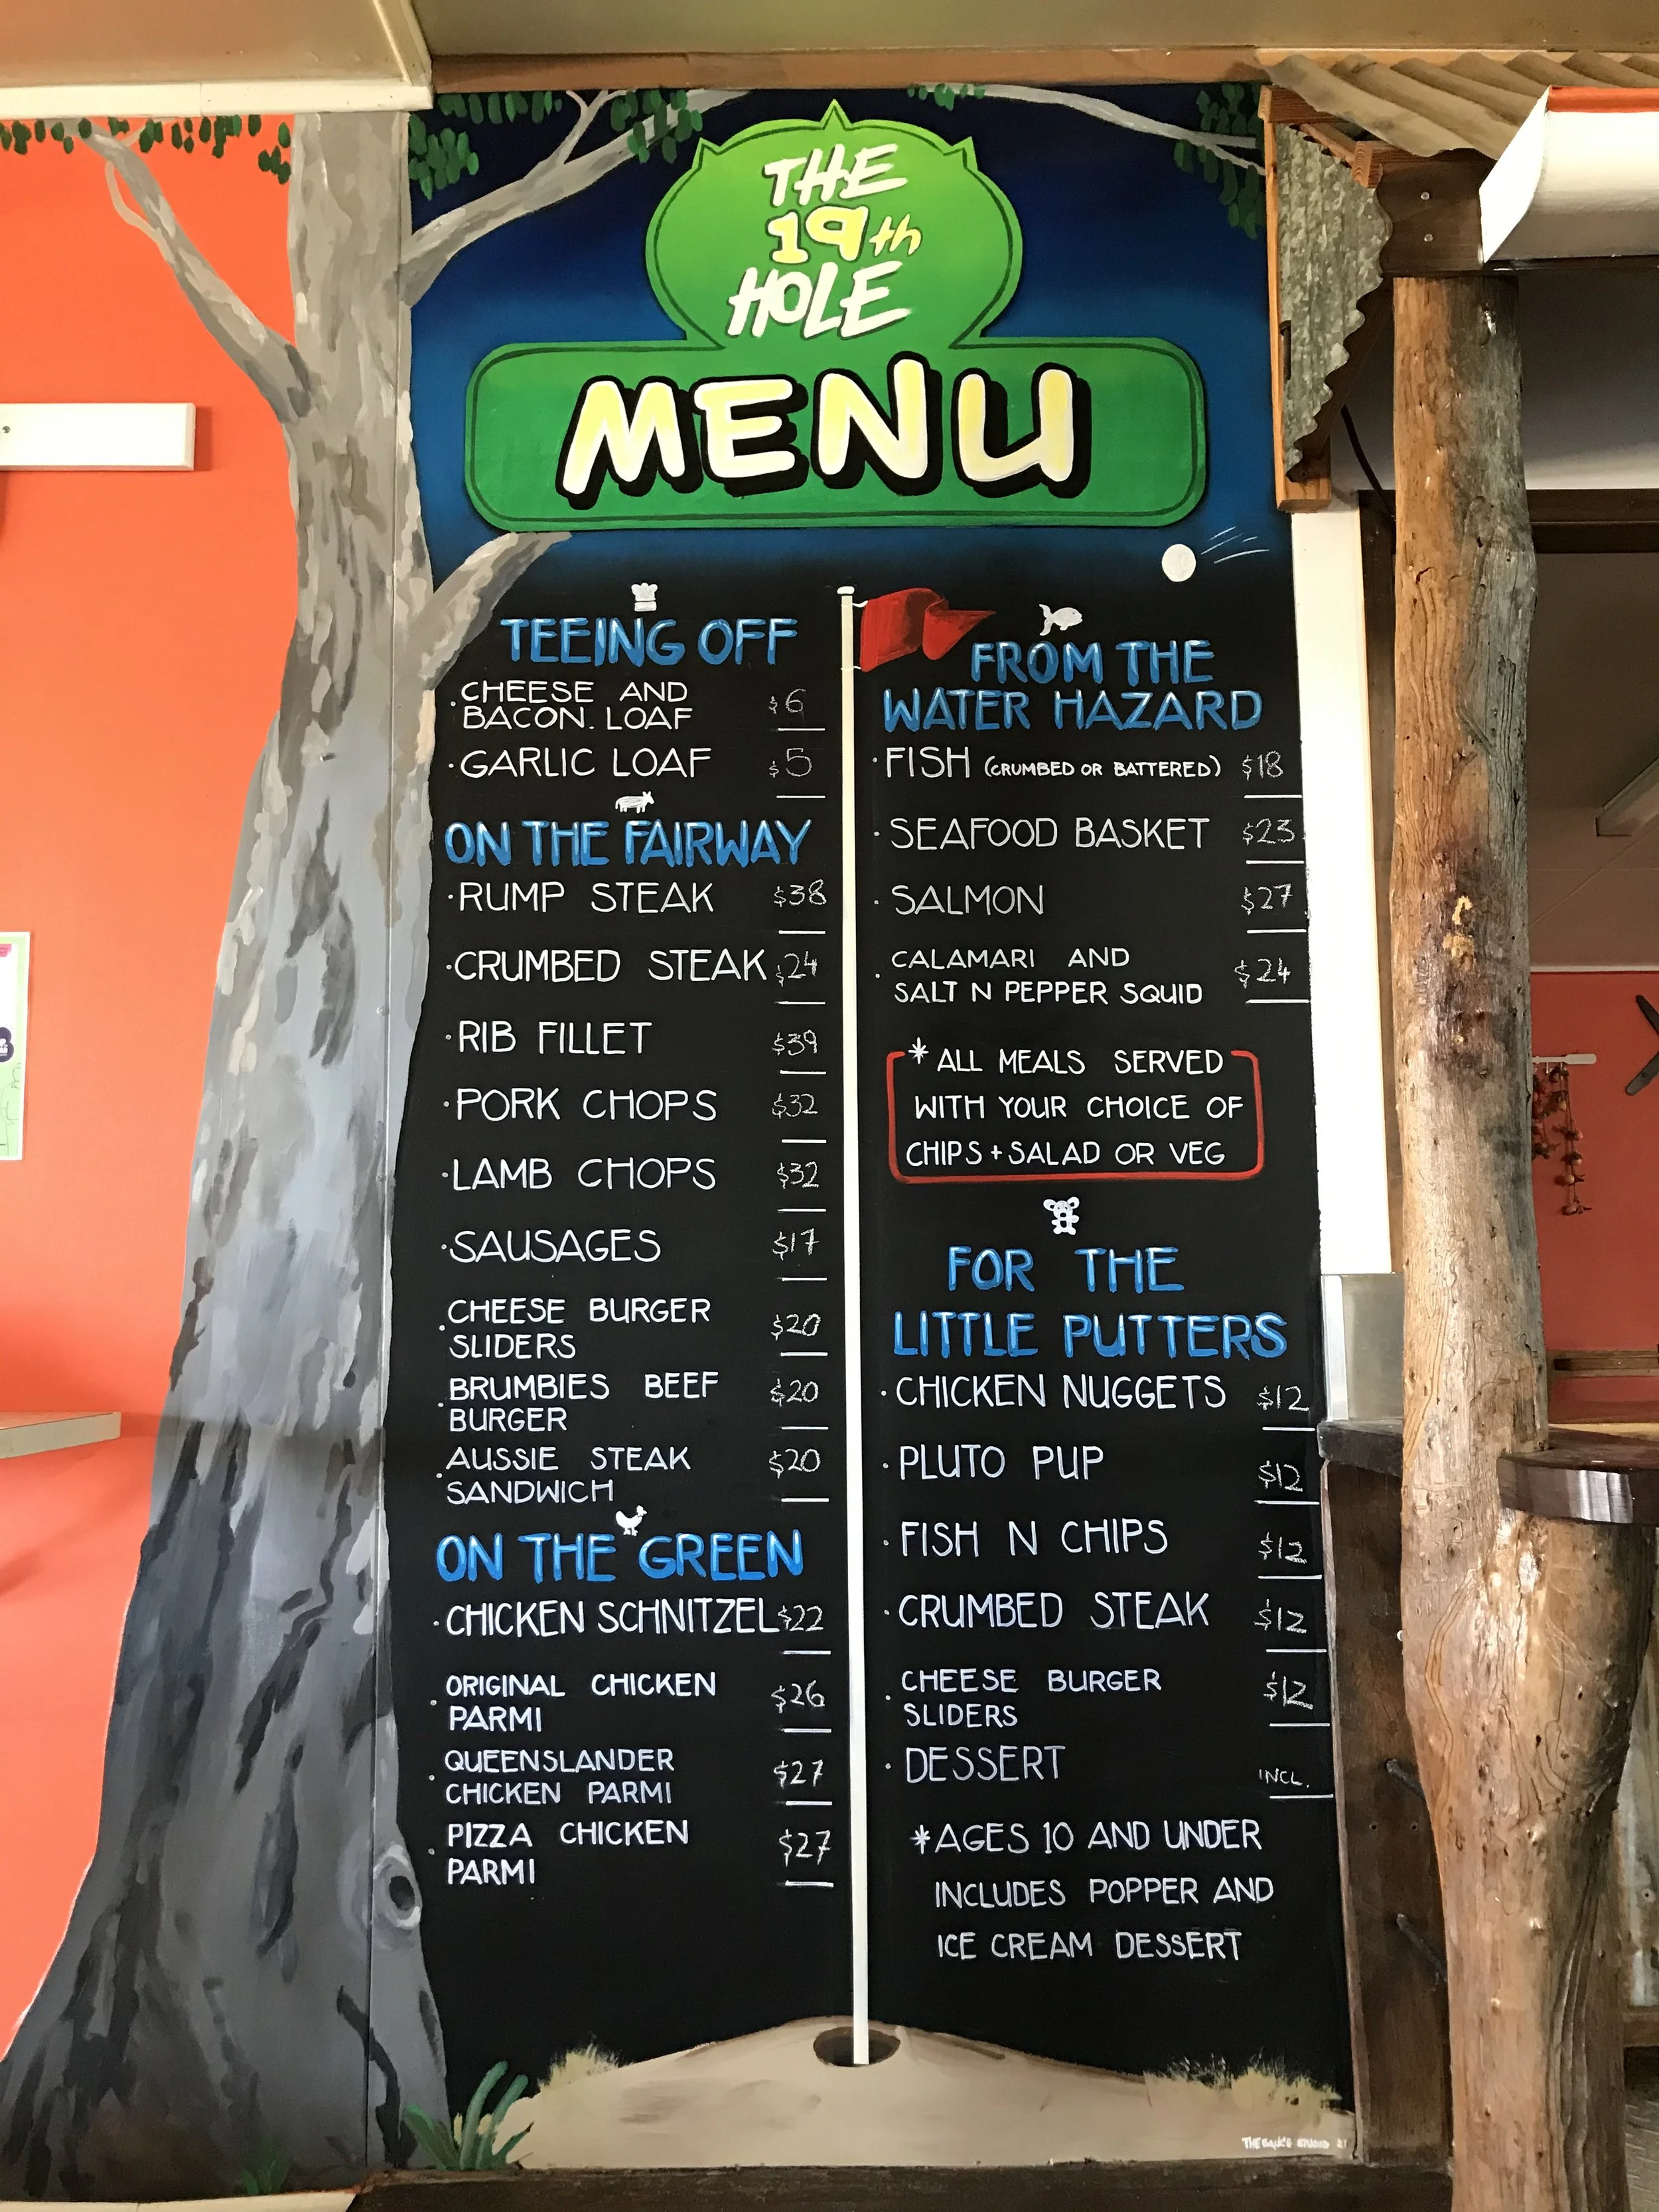 THE
19th
HOLE
MENU
TEEING OFF
· CHEESE AND $6
BACON. LOAF
· GARLIC LOAF $5
ON THE FAIRWAY
· RUMP STEAK $38
· CRUMBED STEAK $24
· RIB FILLET $39
· PORK CHOPS $32
· LAMB CHOPS $32
· SAUSAGES $17
· CHEESE BURGER $20
SLIDERS
· BRUMBIES BEEF $20
BURGER
· AUSSIE STEAK $20
SANDWICH
ON THE GREEN
· CHICKEN SCHNITZEL $22
· ORIGINAL CHICKEN $26
PARMI
· QUEENSLANDER $27
CHICKEN PARMI
· PIZZA CHICKEN $27
PARMI
FROM THE
WATER HAZARD
· FISH (CRUMBED OR BATTERED) $18
· SEAFOOD BASKET $23
· SALMON $27
· CALAMARI AND $24
SALT N PEPPER SQUID
* ALL MEALS SERVED
WITH YOUR CHOICE OF
CHIPS + SALAD OR VEG
FOR THE
LITTLE PUTTERS
· CHICKEN NUGGETS $12
· PLUTO PUP $12
· FISH N CHIPS $12
· CRUMBED STEAK $12
· CHEESE BURGER $12
SLIDERS
· DESSERT INCL.
*AGES 10 AND UNDER
INCLUDES POPPER AND
ICE CREAM DESSERT
THE STUDIO